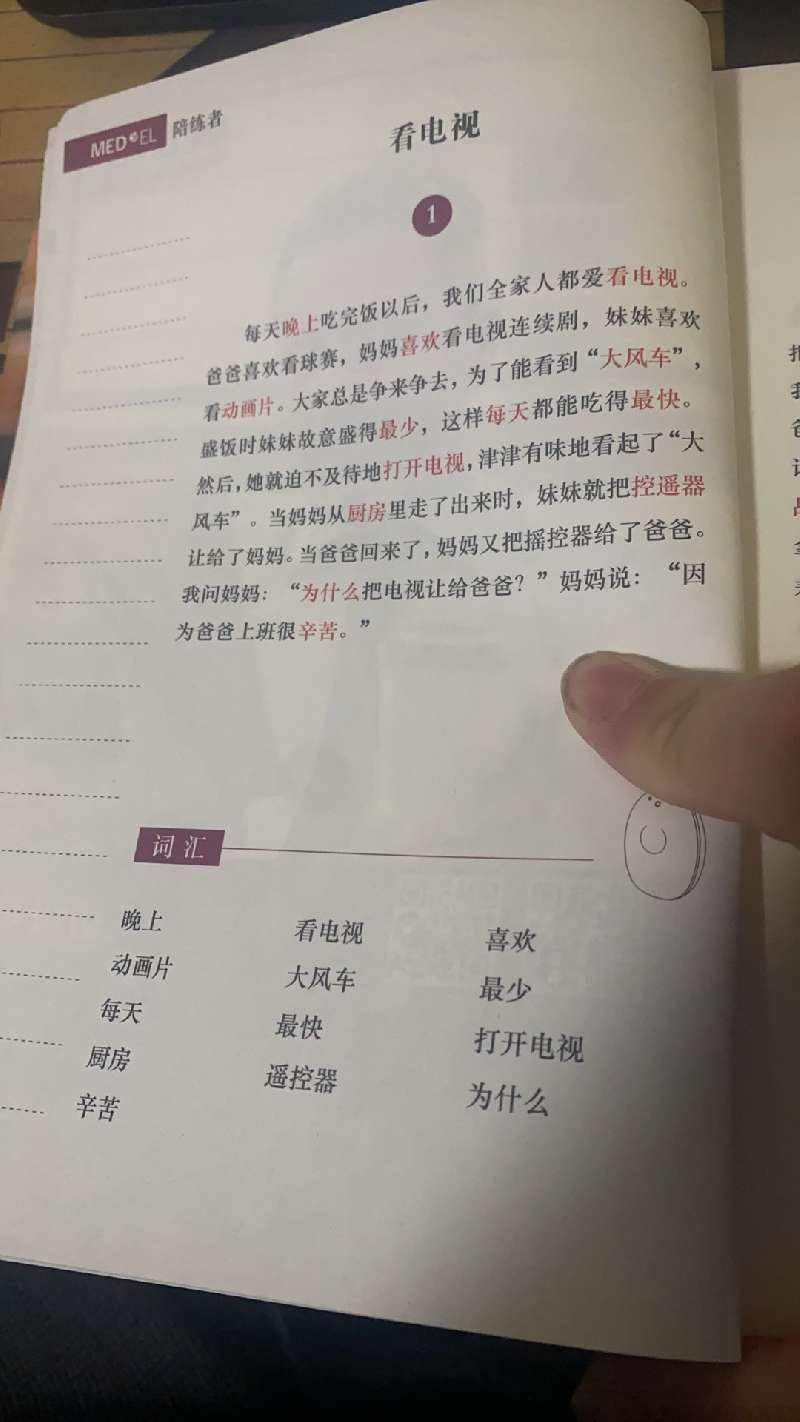 MED EL 陪练者
看电视
1
每天晚上吃完饭以后，我们全家人都爱看电视。
爸爸喜欢看球赛，妈妈喜欢看电视连续剧，妹妹喜欢
看动画片。大家总是争来争去，为了能看到“大风车”，
盛饭时妹妹故意盛得最少，这样每天都能吃得最快。
然后，她就迫不及待地打开电视，津津有味地看起了“大
风车”。当妈妈从厨房里走了出来时，妹妹就把控遥器
让给了妈妈。当爸爸回来了，妈妈又把摇控器给了爸爸。
我问妈妈：“为什么把电视让给爸爸？”妈妈说：“因
为爸爸上班很辛苦。”
词汇
晚上 看电视 喜欢
动画片 大风车 最少
每天 最快 打开电视
厨房 遥控器 为什么
辛苦